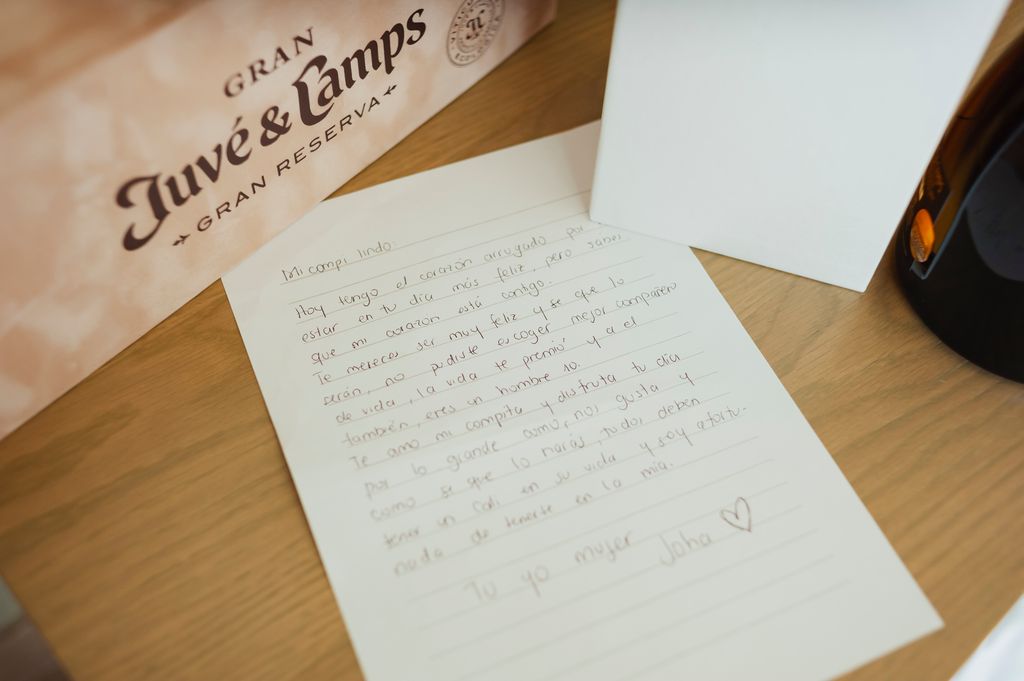 GRAN
Juvé & Camps
GRAN RESERVA
Mi compi lindo:
Hoy tengo el corazón arrugado por
estar en tu día más feliz, pero sabes
que mi corazón está contigo.
Te mereces ser muy feliz y se que lo
serán, no pudiste escoger mejor compañero
de vida, la vida te premió y a el
también, eres un hombre 10.
Te amo mi compita y disfruta tu día
por lo grande como nos gusta y
como se que lo harás, todos deben
tener un Cali en su vida y soy afortu-
nada de tenerte en la mía.
Tu yo mujer Joha